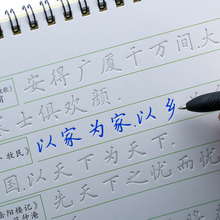 安得广厦千万间,大
士俱欢颜.
以家为家,以乡
牧民》
国,以天下为天下.
先天下之忧而忧
岳阳楼记》